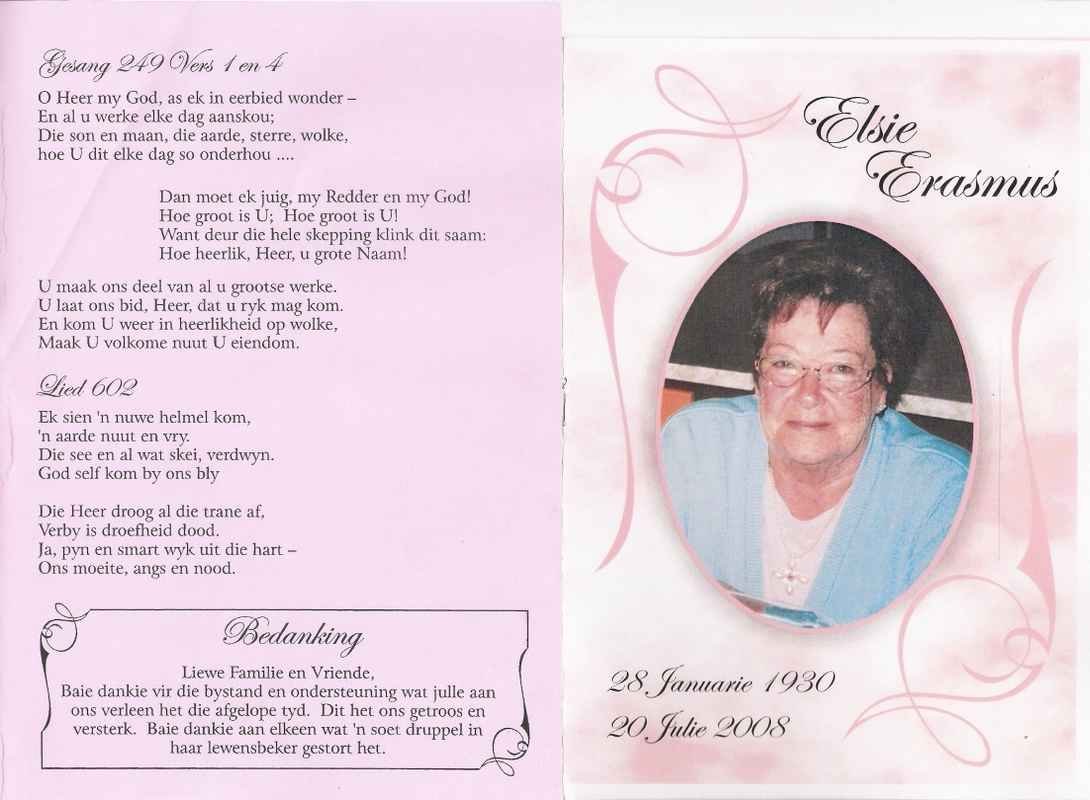 Gesang 249 Vers 1 en 4
O Heer my God, as ek in eerbied wonder –
En al u werke elke dag aanskou;
Die son en maan, die aarde, sterre, wolke,
hoe U dit elke dag so onderhou ....
Dan moet ek juig, my Redder en my God!
Hoe groot is U; Hoe groot is U!
Want deur die hele skepping klink dit saam:
Hoe heerlik, Heer, u grote Naam!
U maak ons deel van al u grootse werke.
U laat ons bid, Heer, dat u ryk mag kom.
En kom U weer in heerlikheid op wolke,
Maak U volkome nuut U eiendom.
Lied 602
Ek sien 'n nuwe helmel kom,
'n aarde nuut en vry.
Die see en al wat skei, verdwyn.
God self kom by ons bly
Die Heer droog al die trane af,
Verby is droefheid dood.
Ja, pyn en smart wyk uit die hart –
Ons moeite, angs en nood.
Bedanking
Liewe Familie en Vriende,
Baie dankie vir die bystand en ondersteuning wat julle aan
ons verleen het die afgelope tyd. Dit het ons getroos en
versterk. Baie dankie aan elkeen wat 'n soet druppel in
haar lewensbeker gestort het.
Elsie
Erasmus
28 Januarie 1930
20 Julie 2008